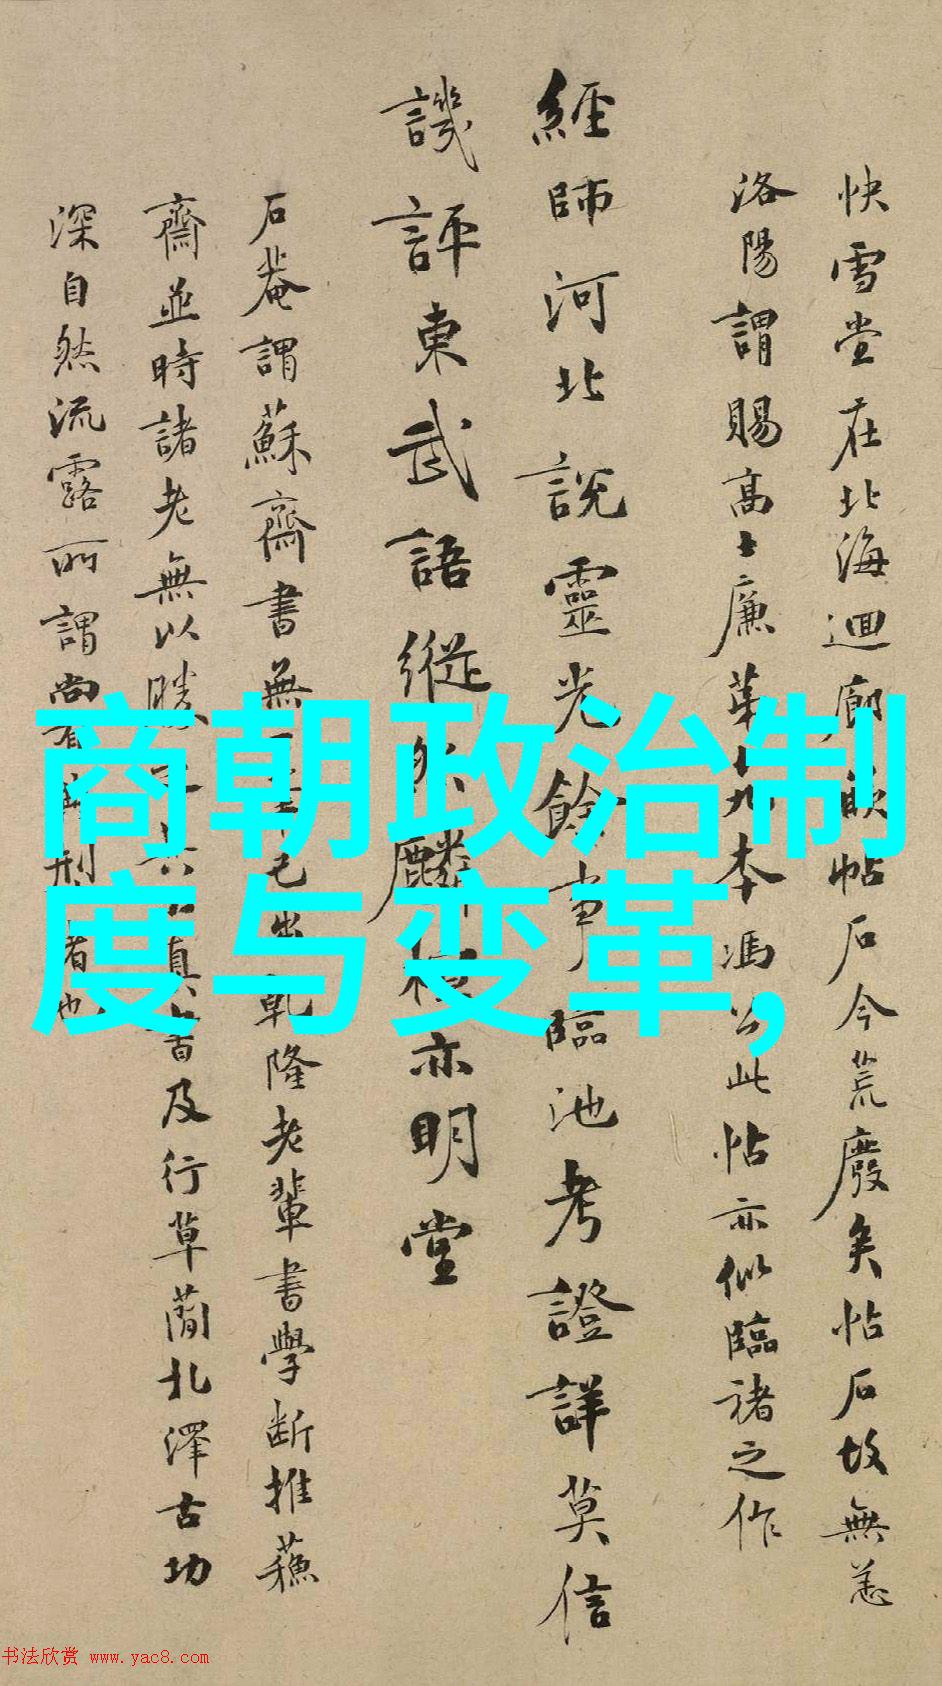 快雪堂在北海迴廊嵌帖石今荒廢矣帖石故無恙
洛陽謂賜高士廉九本馮公此帖亦似臨褚之作
經師河北説靈光餘事臨池考證詳莫信
譏評東武語縱然麟楦亦明堂
石菴謂蘇齋書無己出乾隆老輩書學斷推蘇
齋並時諸老無以勝真書及行草澤古功
深自然流露所謂尚有型者也
商朝政治制
度与变革,
书法欣赏 www.yac8.com